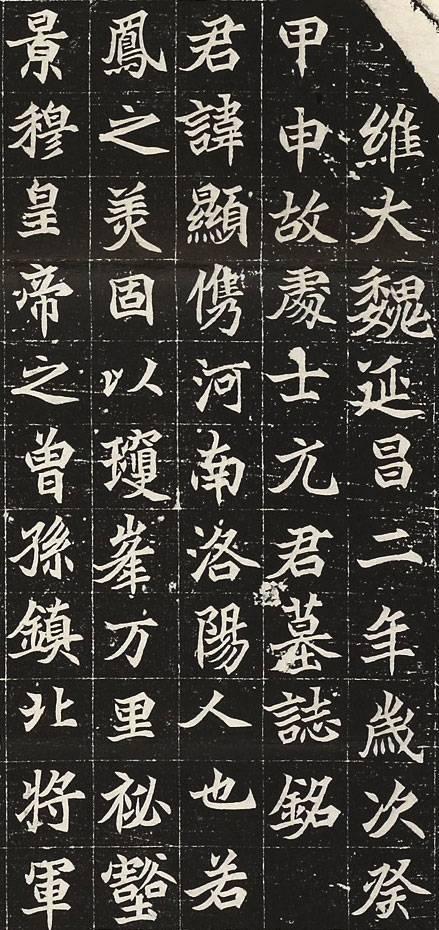 維大魏延昌二年歲次癸
甲申故處士元君墓誌銘
君諱顯儁河南洛陽人也若
鳳之羙固以瓊峯万里祕壑
景穆皇帝之曾孫鎮北將軍